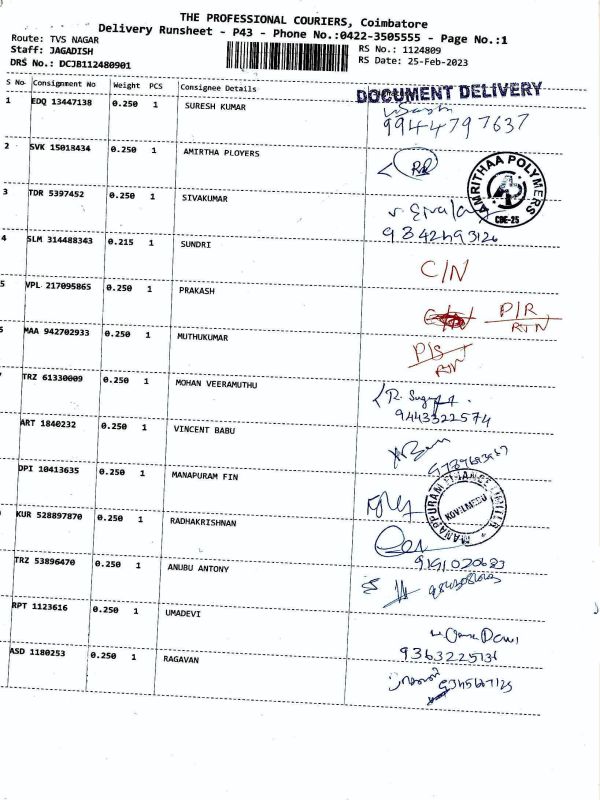 THE PROFESSIONAL COURIERS, Coimbatore
Delivery Runsheet - P43 - Phone No.:0422-3505555 - Page No.:1
Route: TVS NAGAR
Staff: JAGADISH
DRS No.: DCJB112480901
RS No.: 1124809
RS Date: 25-Feb-2023
S No Consignment No Weight PCS Consignee Details
DOCUMENT DELIVERY
1 EDQ 13447138 0.250 1 SURESH KUMAR
9944797637
2 SVK 15018434 0.250 1 AMIRTHA PLOYERS
AMRITHAA POLYMERS
CBE-25
3 TDR 5397452 0.250 1 SIVAKUMAR
4 SLM 314488343 0.215 1 SUNDRI C/N
5 VPL 217095865 0.250 1 PRAKASH P/R
RTN
MAA 942702933 0.250 1 MUTHUKUMAR P/S
RTN
TRZ 61330009 0.250 1 MOHAN VEERAMUTHU
9443322574
ART 1840232 0.250 1 VINCENT BABU
DPI 10413635 0.250 1 MANAPURAM FIN
MANAPPURAM FINANCE LIMITED
KOVILMEDU
KUR 528897870 0.250 1 RADHAKRISHNAN
9191020683
TRZ 53896470 0.250 1 ANUBU ANTONY
RPT 1123616 0.250 1 UMADEVI
9363225136
ASD 1180253 0.250 1 RAGAVAN